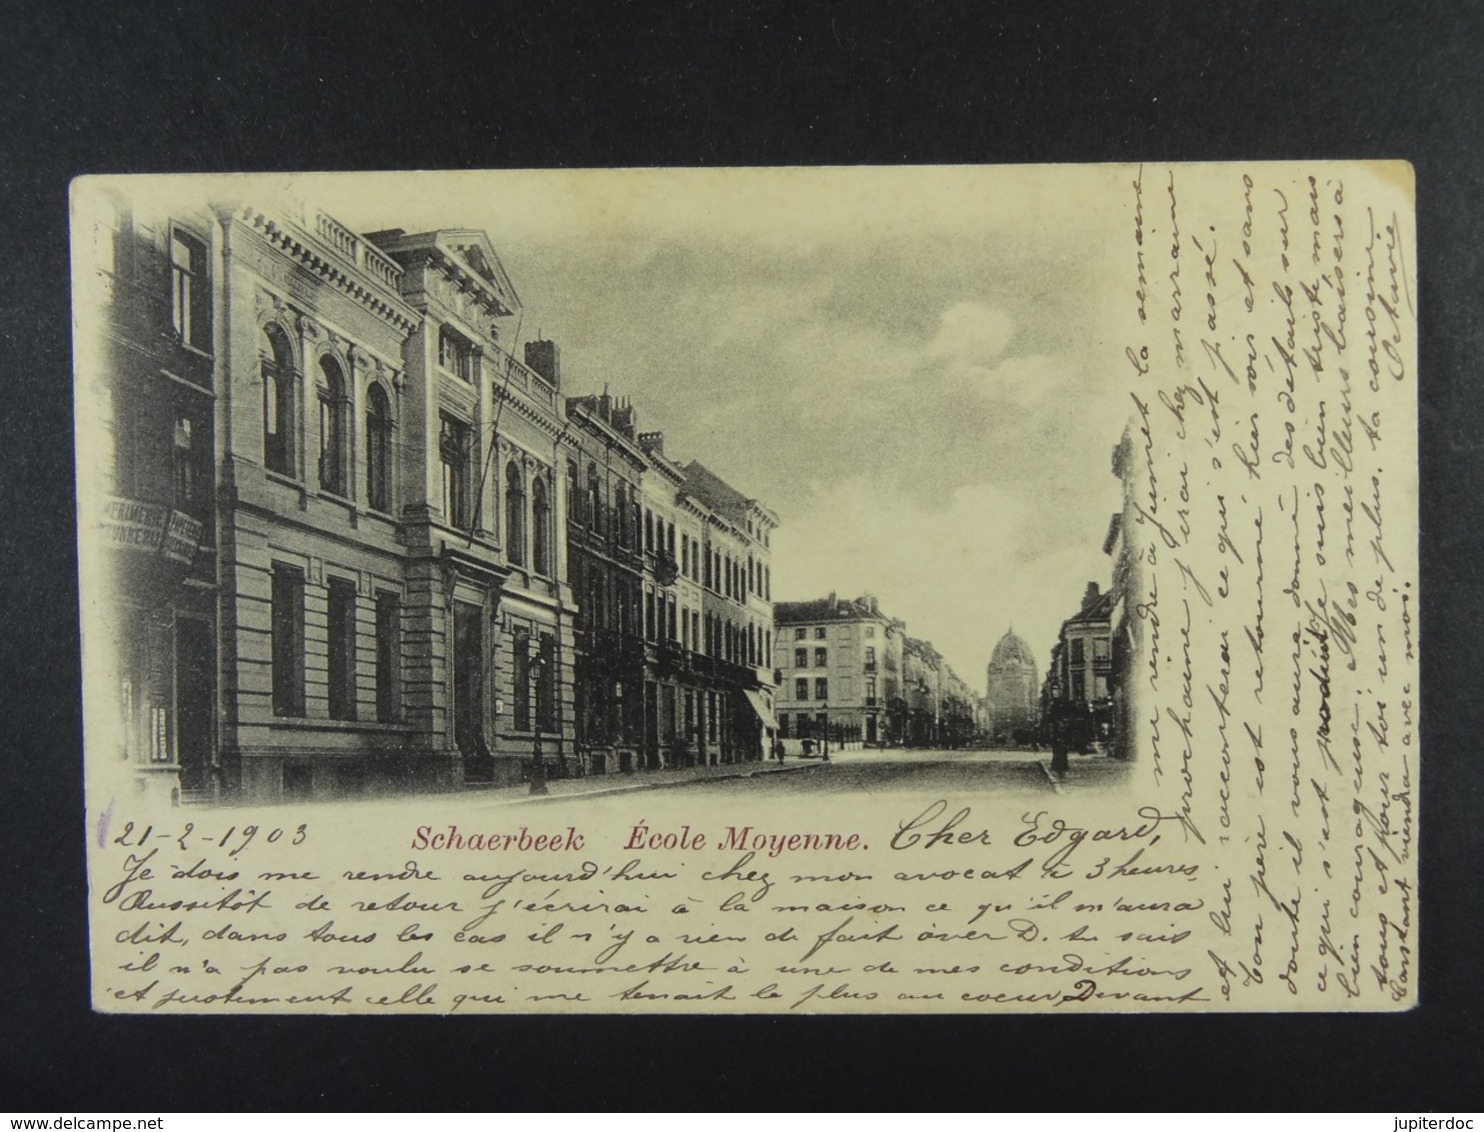 21-2-1903
Schaerbeek École Moyenne.
Cher Edgard,
Je dois me rendre aujourd'hui chez mon avocat à 3 heures.
Aussitôt de retour j'écrirai à la maison ce qu'il m'aura
dit, dans tous les cas il n'y a rien de fait avec D. tu sais
il n'a pas voulu se soumettre à une de mes conditions
et justement celle qui me tenait le plus au coeur. Devant
me rendre à Jumet la semaine
prochaine j'irai chez marraine
et lui raconterai ce qui s'est passé.
Ton père est retourné hier soir et sans
doute il vous aura donné des détails sur
ce qui s'est produit. Je suis bien triste mais
bien courageuse. Mes meilleurs baisers à
tous et pour toi un de plus. ta cousine
Octavie
Constant viendra avec moi.
IMPRIMERIE
jupiterdoc
http://www.delcampe.net